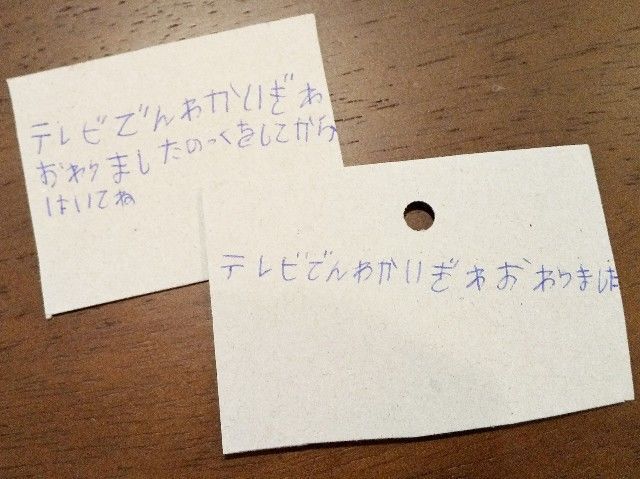 テレビでんわかいぎわ
おわりましたのっくをしてから
はいてね
テレビでんわかいぎわおわりました